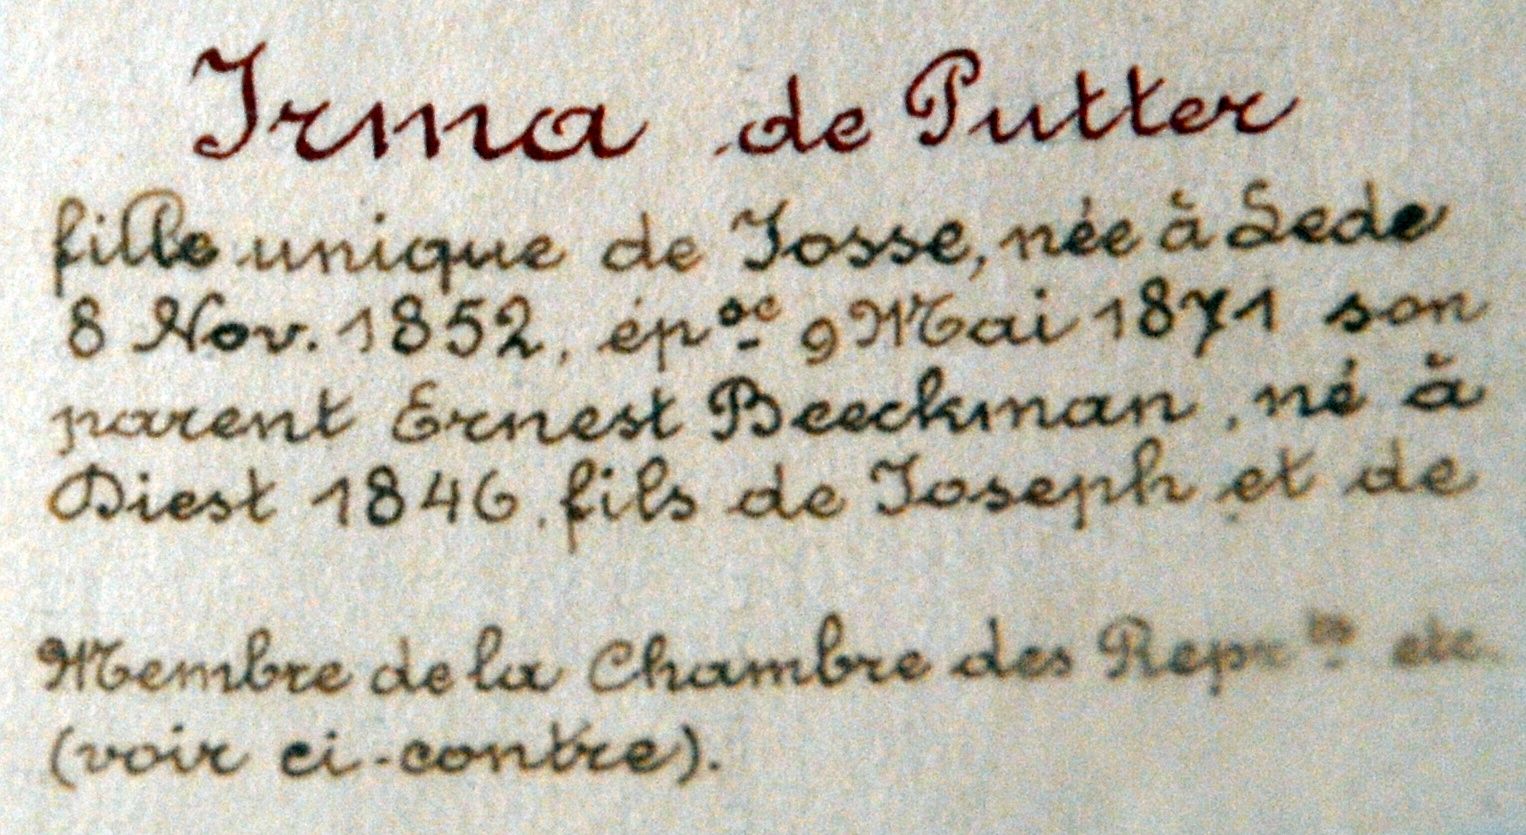 Irma de Putter
fille unique de Josse, née à Lede
8 Nov. 1852, épse 9 Mai 1871 son
parent Ernest Beeckman, né à
Diest 1846, fils de Joseph et de
Membre de la Chambre des Reprts etc.
(voir ci-contre).